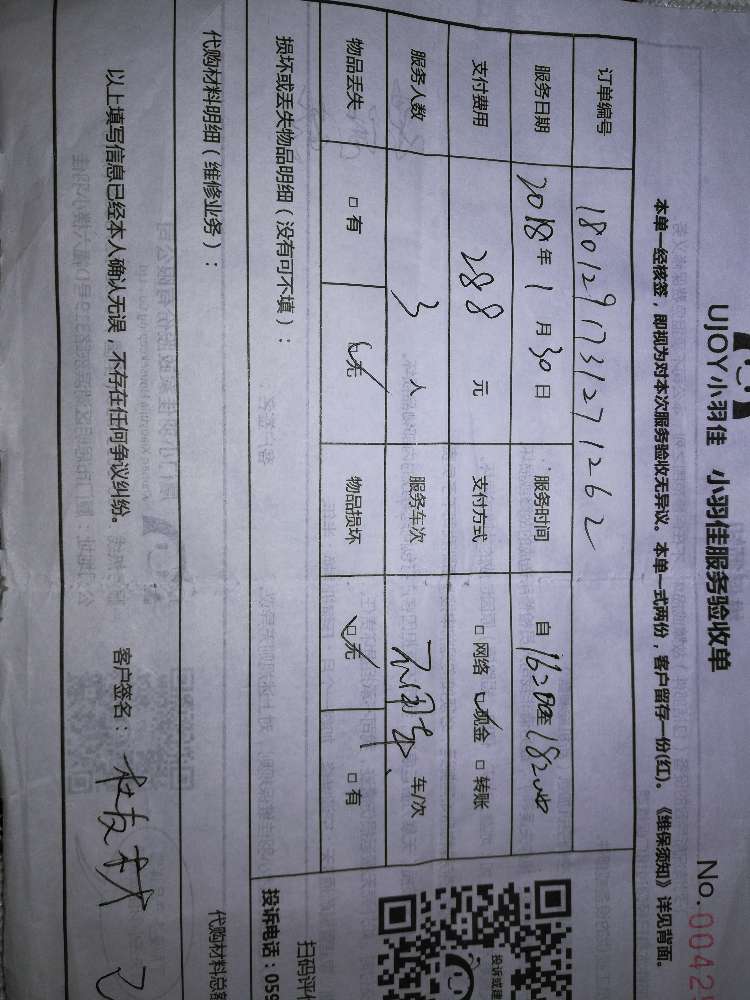 UJOY小羽佳 小羽佳服务验收单
No.0042
本单一经核签，即视为对本次服务验收无异议。本单一式两份，客户留存一份(红)。《维保须知》详见背面。
订单编号 1801291731271262
服务日期 2018年1月30日 服务时间 自16:00至18:00
支付费用 288元 支付方式 □网络 ☑现金 □转账
服务人数 3人 服务车次 不用车 车/次
物品丢失 □有 ☑无 物品损坏 ☑无 □有
损坏或丢失物品明细（没有可不填）：
扫码评
投诉或建
投诉电话：059
代购材料明细（维修业务）：
代购材料总
以上填写信息已经本人确认无误，不存在任何争议纠纷。 客户签名：